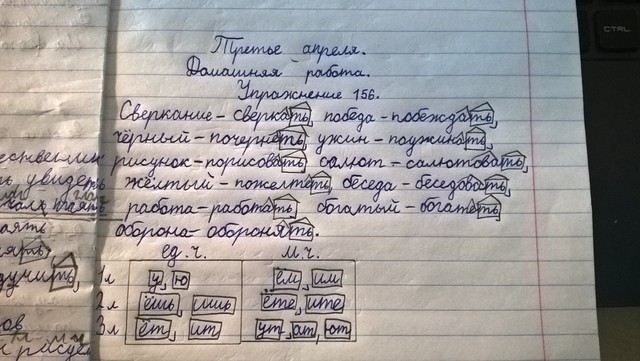 Третье апреля.
Домашняя работа.
Упражнение 156.
Сверкание – сверкать, победа – побеждать,
чёрный – почернеть, ужин – поужинать,
рисунок – порисовать, салют – салютовать,
жёлтый – пожелтеть, беседа – беседовать,
работа – работать, богатый – богатеть
оборона – оборонять.
ед.ч. м.ч.
1л у, ю ем, им
2л ёшь, ишь ёте, ите
3л ёт, ит ут, ат, ют
ь увидеть
CTRL